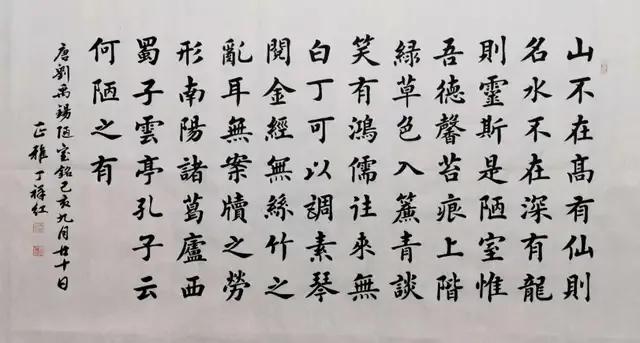 山不在髙有仙則
名水不在深有龍
則靈斯是陋室惟
吾德馨苔痕上階
綠草色入簾青談
笑有鴻儒往來無
白丁可以調素琴
閱金經無絲竹之
亂耳無案牘之勞
形南陽諸葛廬西
蜀子雲亭孔子云
何陋之有
唐劉禹錫陋室銘己亥九月廿十日
正雅丁祥红